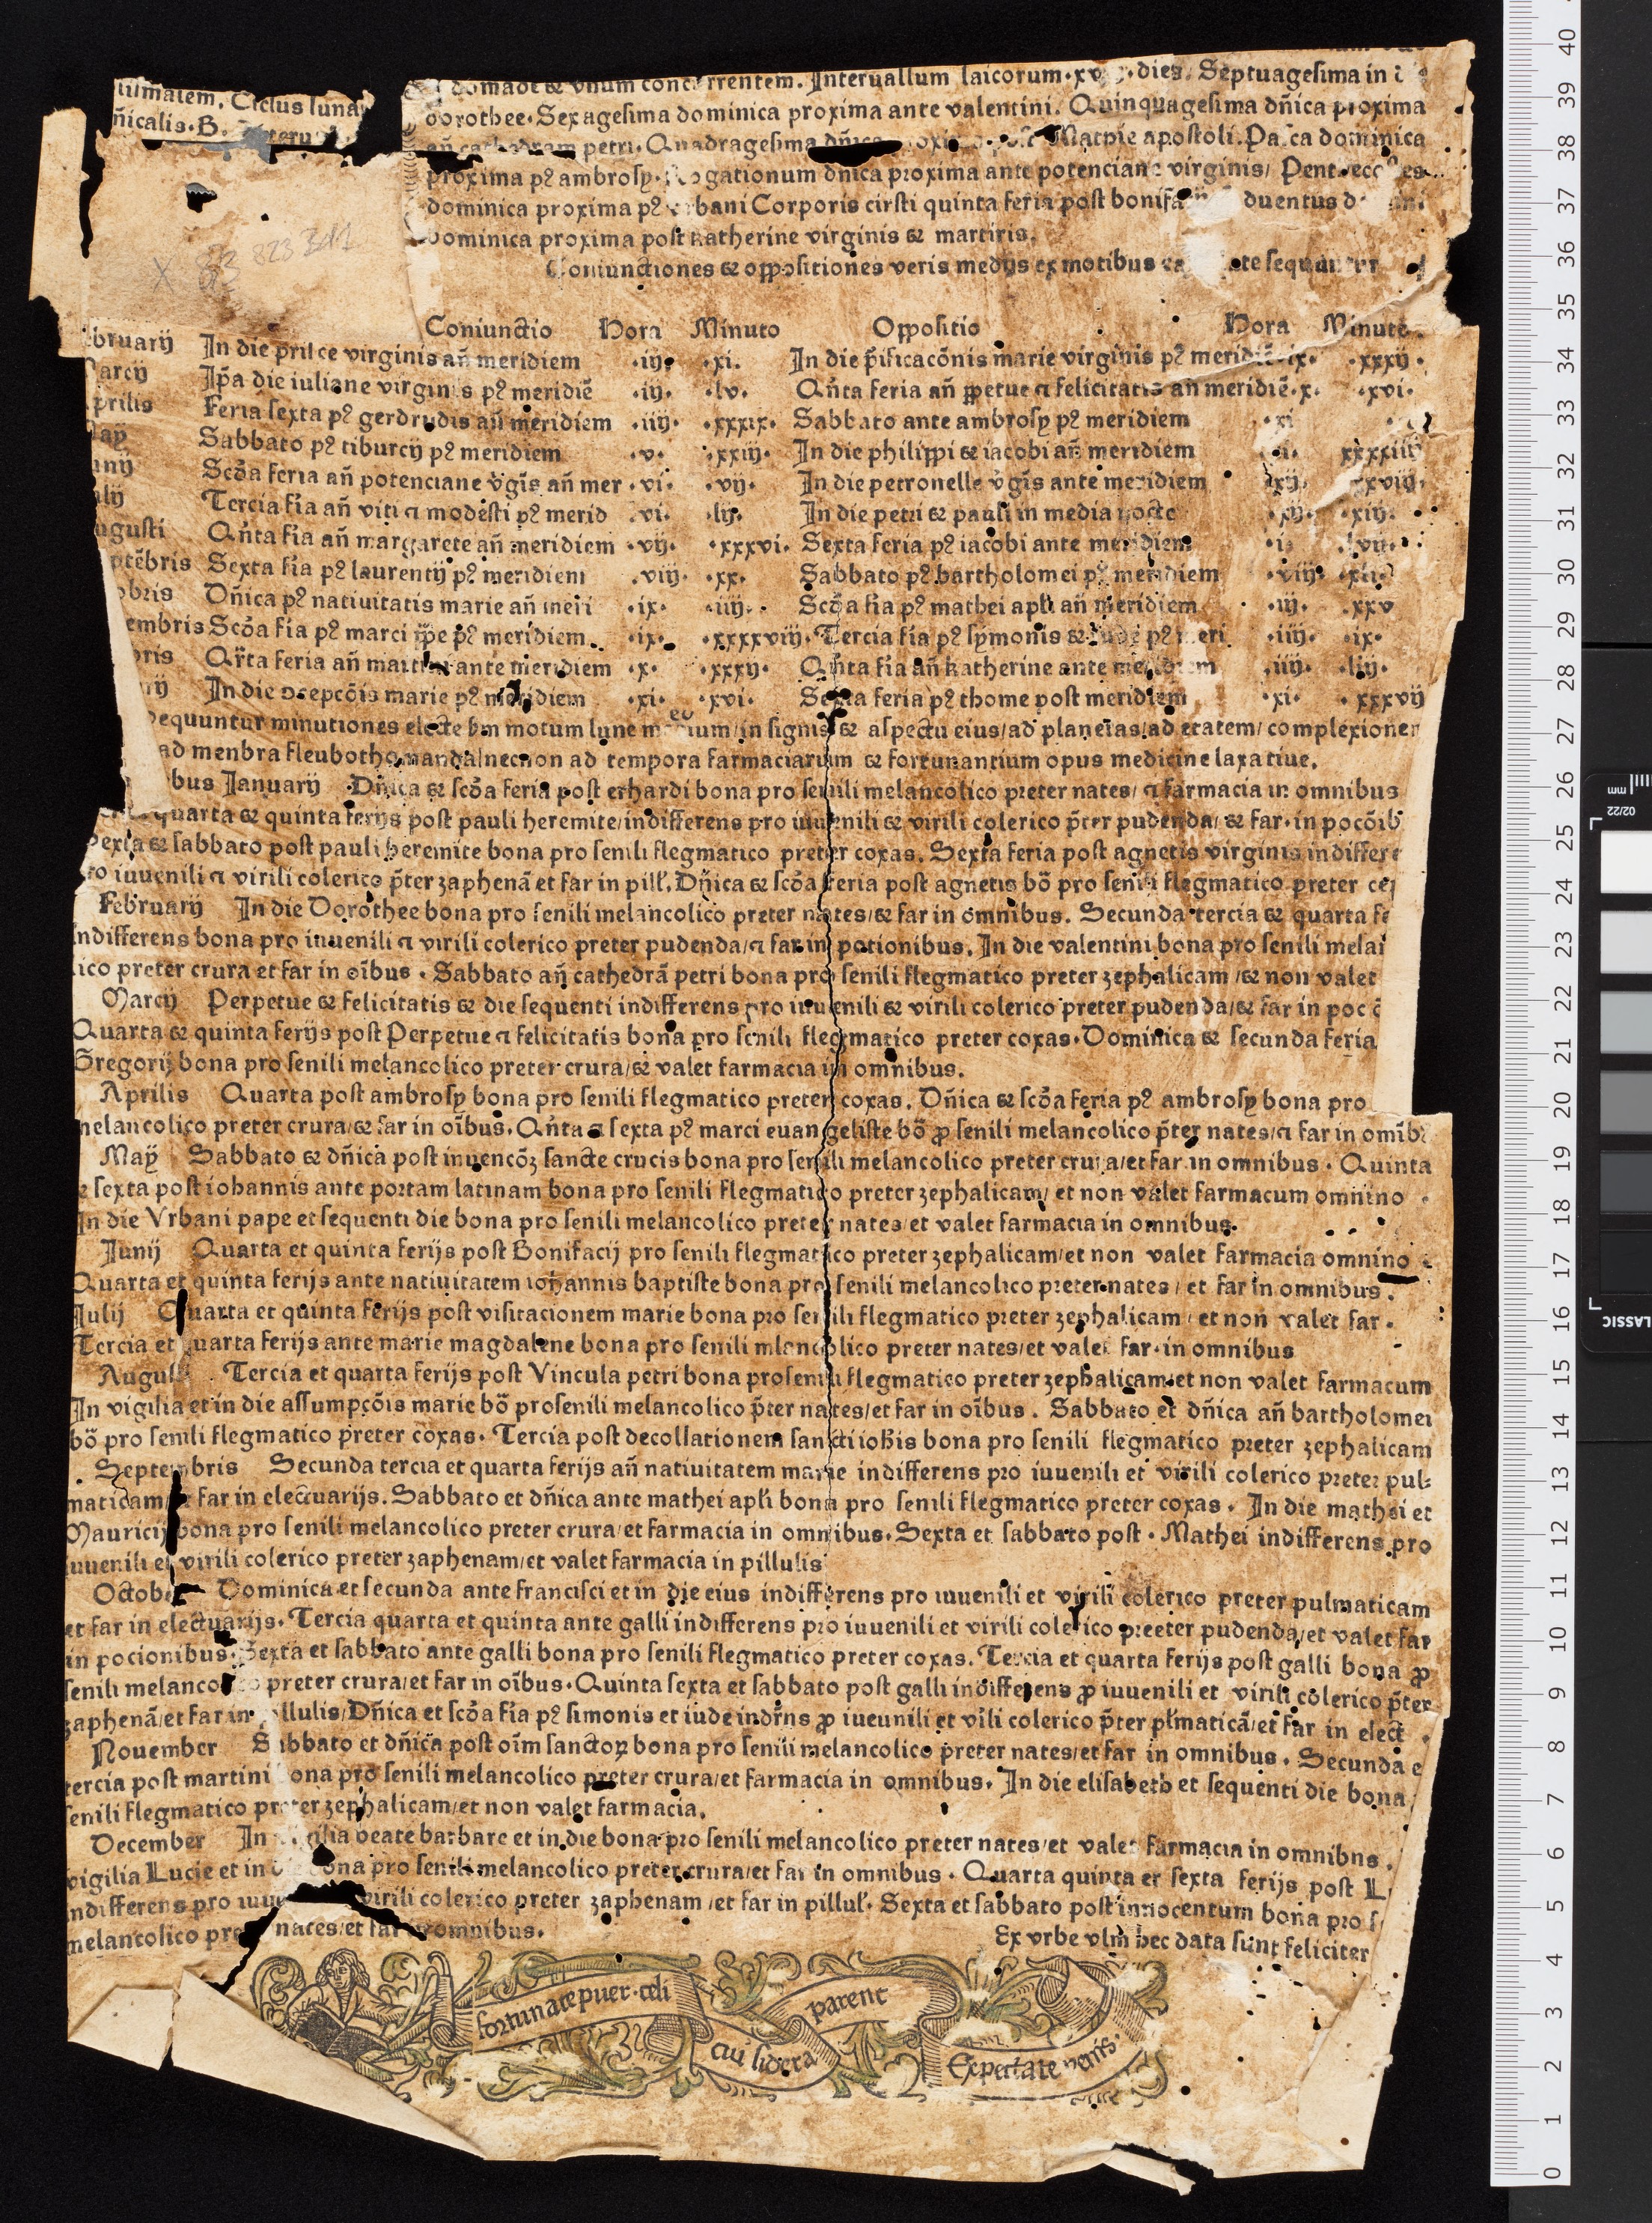 domade & vnum concurrentem. Interuallum laicorum·xv dies. Septuagesima in
tilmalem. Ciclus luna
dorothee·Sexagesima dominica proxima ante valentini. Quinquagesima dñica proxima
ñicalis·B.
añ cathedram petri. Quadragesima dñica Mathie apostoli. Pasca dominica
proxima pꝰ ambrosÿ· Rogationum dñica proxima ante potenciane virginis/ Pent ecostes
dominica proxima pꝰ vrbani Corporis cirsti quinta feria post bonifa duentus
dominica proxima post katherine virginis & martiris.
Coniunctiones & oppositiones veris medijs ex motibus sequuntur
Coniunctio Hora Minuto Oppositio Hora Minuto
bruarij In die prisce virginis añ meridiem ·iij· ·xi. In die p̃ificacõnis marie virginis pꝰ meridiẽ·ix· ·xxxij·
arcij Ip̃a die iuliane virginis pꝰ meridiẽ ·iij· ·lv. Qñta feria añ ꝑpetue ⁊ felicitatis añ meridiẽ·x· ·xvi·
prilis Feria sexta pꝰ gerdrudis añ meridiem ·iiij· ·xxxix· Sabbato ante ambrosÿ pꝰ meridiem ·xi
aÿ Sabbato pꝰ tiburcij pꝰ meridiem ·v· ·xxiij· In die philippi & iacobi añ meridiem ·i· xxxxiiij
unij Scd̃a feria añ potenciane v̓gis añ mer ·vi· ·vij· In die petronelle v̓gis ante meridiem ·xij· xxviij·
ulij Tercia fia añ viti ⁊ modesti pꝰ merid ·vi· ·lij· In die petri & pauli in media nocte ·xij· ·xiij·
ugusti Qñta fia añ margarete añ meridiem ·vij· ·xxxvi· Sexta feria pꝰ iacobi ante meridiem
ptẽbris Sexta fia pꝰ laurentij pꝰ meridiem ·viij· ·xx· Sabbato pꝰ bartholomei pꝰ meridiem ·viij· ·xii·
obris Dñica pꝰ natiuitatis marie añ meri ·ix· ·iiij· Scd̃a fia pꝰ mathei apl̓i añ meridiem ·iij· ·xxv
embris Scd̃a fia pꝰ marci p̃pe pꝰ meridiem ·ix· ·xxxxviij· Tercia fia pꝰ sÿmonis & iude pꝰ meri ·iiij· ·ix·
bris Qr̃ta feria añ martini ante meridiem ·x· ·xxxij· Qñta fia añ katherine ante meridiem ·iiij· ·liij·
rij In die ꝯcepcõis marie pꝰ meridiem ·xi· ·xvi· Sexta feria pꝰ thome post meridiem ·xi· ·xxxvij
Sequuntur minutiones electe sm motum lune medium/in signis & aspectu eius/ad planetas/ad etatem/complexionem
ad menbra fleubothomanda/necnon ad tempora farmaciarum & fortunantium opus medicine laxatiue.
bus Januarij Dñica & scd̃a feria post erhardi bona pro senili melancolico preter nates/ ⁊ farmacia in omnibus
quarta & quinta ferijs post pauli heremite/indifferens pro iuuenili & virili colerico p̃ter pudenda/ & far·in pocõib
Sexta & sabbato post pauli heremite bona pro senili flegmatico preter coxas. Sexta feria post agnetis virginis indiffere
ro iuuenili ⁊ virili colerico p̃ter zaphenã et far in pill̓. Dñica & scd̃a feria post agnetis bõ pro senili flegmatico preter
Februarij In die Dorothee bona pro senili melancolico preter nates/& far in omnibus. Secunda tercia & quarta fe
Indifferens bona pro iuuenili ⁊ virili colerico preter pudenda/⁊ far in potionibus. In die valentini bona pro senili mela
lico preter crura et far in oĩbus · Sabbato añ cathedrã petri bona pro senili flegmatico preter zephalicam /& non valet
Marcij Perpetue & felicitatis & die sequenti indifferens pro iuuenili & virili colerico preter pudenda/& far in pocõ
Quarta & quinta ferijs post Perpetue ⁊ felicitatis bona pro senili flegmatico preter coxas·Dominica & secunda feria
Gregorij bona pro senili melancolico preter crura/& valet farmacia in omnibus.
Aprilis Quarta post ambrosÿ bona pro senili flegmatico preter coxas. Dñica & scd̃a feria pꝰ ambrosÿ bona pro
melancolico preter crura/& far in oĩbus. Qñta ⁊ sexta pꝰ marci euangeliste bõ ꝓ senili melancolico p̃ter nates/⁊ far in omĩb
Maÿ Sabbato & dñica post inuencõꝫ sancte crucis bona pro senili melancolico preter crura/et far in omnibus · Quinta
& sexta post iohannis ante portam latinam bona pro senili flegmatico preter zephalicam/ et non valet farmacum omnino
In die Vrbani pape et sequenti die bona pro senili melancolico preter nates/et valet farmacia in omnibus·
Junij Quarta et quinta ferijs post Bonifacij pro senili flegmatico preter zephalicam/et non valet farmacia omnino
Quarta et quinta ferijs ante natiuitatem iohannis baptiste bona pro senili melancolico preter nates/ et far in omnibus.
Julij Quarta et quinta ferijs post visitacionem marie bona pro senili flegmatico preter zephalicam / et non valet far ·
Tercia et quarta ferijs ante marie magdalene bona pro senili mlancolico preter nates/et valet far· in omnibus
Augusti Tercia et quarta ferijs post Vincula petri bona pro senili flegmatico preter zephalicam·et non valet farmacum
In vigilia et in die assumpcõis marie bõ pro senili melancolico p̃ter nates/et far in oĩbus . Sabbato et dñica añ bartholomei
bõ pro senili flegmatico preter coxas· Tercia post decollationem sancti ioh̃is bona pro senili flegmatico preter zephalicam
Septembris Secunda tercia et quarta ferijs añ natiuitatem marie indifferens pro iuuenili et virili colerico preter pul-
maticam/et far in electuarijs. Sabbato et dñica ante mathei apl̓i bona pro senili flegmatico preter coxas · In die mathei et
Mauricij bona pro senili melancolico preter crura/et farmacia in omnibus. Sexta et sabbato post · Mathei indifferens pro
iuuenili et virili colerico preter zaphenam/et valet farmacia in pillulis
October Dominica et secunda ante francisci et in die eius indifferens pro iuuenili et virili colerico preter pulmaticam
et far in electuarijs· Tercia quarta et quinta ante galli indifferens pro iuuenili et virili colerico preeter pudenda/et valet far
in pocionibus· Sexta et sabbato ante galli bona pro senili flegmatico preter coxas. Tercia et quarta ferijs post galli bona ꝓ
senili melancolico preter crura/et far in oĩbus·Quinta sexta et sabbato post galli indifferens ꝓ iuuenili et virili colerico p̃ter
zaphenã/et far in pillulis/Dñica et scd̃a fia pꝰ simonis et iude indr̃ns ꝓ iueunili et v̓ili colerico p̃ter pl̓maticã/et far in elect
November Sabbato et dñica post oĩm sanctoꝝ bona pro senili melancolico preter nates/et far in omnibus . Secunda e
tercia post martini bona pro senili melancolico preter crura/et farmacia in omnibus. In die elisabeth et sequenti die bona
senili flegmatico preter zephalicam/et non valet farmacia.
December In vigilia beate barbare et in die bona pro senili melancolico preter nates/et valet farmacia in omnibns.
vigilia Lucie et in die bona pro senili melancolico preter crura/et far in omnibus · Quarta quinta er sexta ferijs post L
indifferens pro iuue virili colerico preter zaphenam /et far in pillul̓· Sexta et sabbato post innocentum bona pro s
melancolico pre nates/et far omnibus.
Ex vrbe vlm hec data sunt feliciter
fortunate puer·celi
cui sidera
parent
Expectate venis·